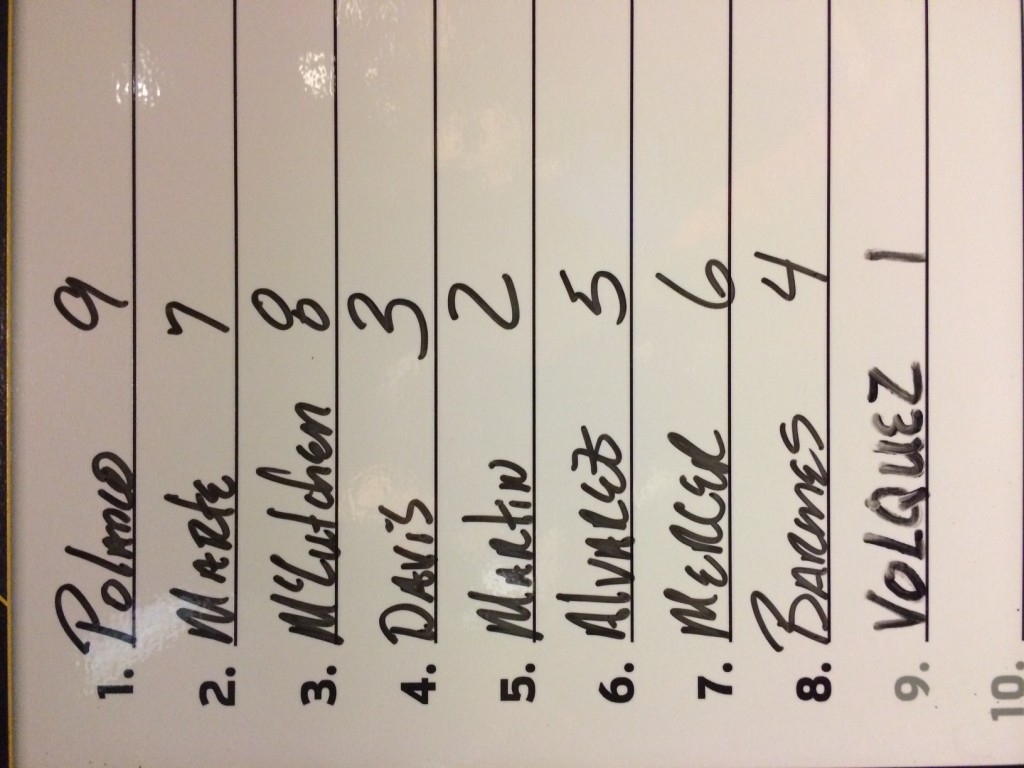 1. Polanco 9
2. Marte 7
3. McCutchen 8
4. Davis 3
5. Martin 2
6. Alvarez 5
7. Mercer 6
8. Barmes 4
9. VOLQUEZ 1
10.